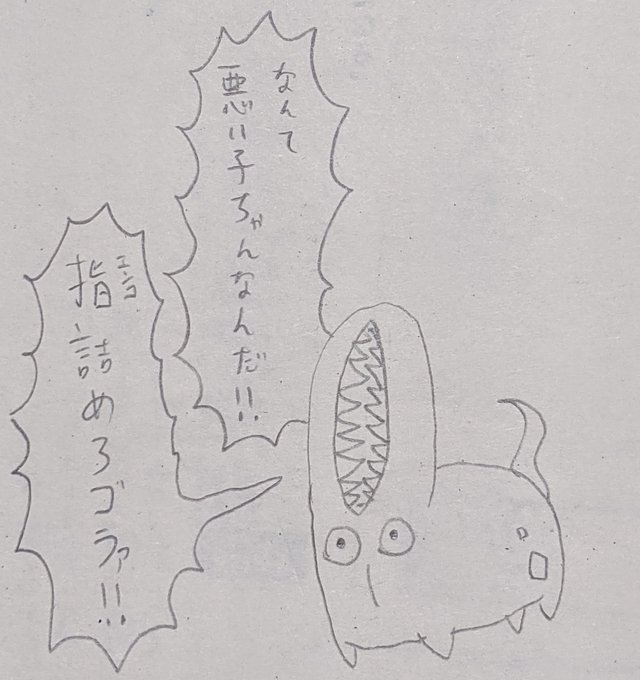 なんて
悪い子ちゃんなんだ!!
エンコ
指詰めろゴラァ!!